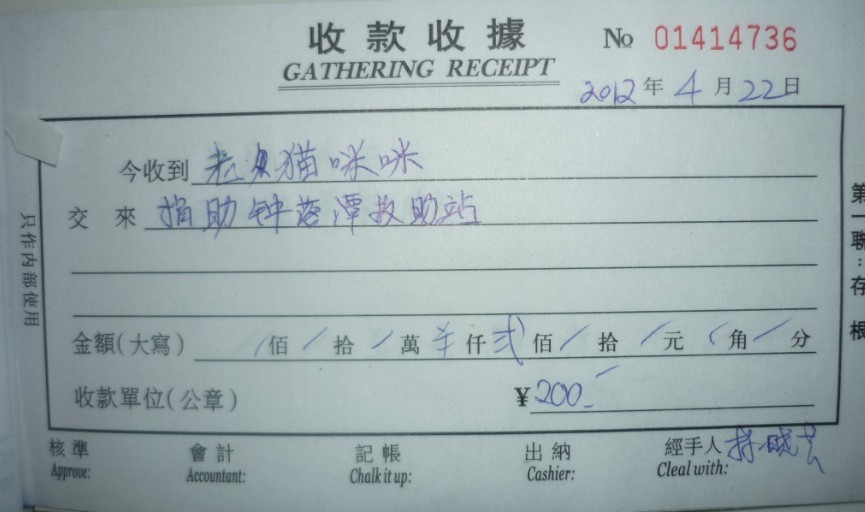 收款收據 No 01414736
GATHERING RECEIPT
2012年4月22日
今收到 老 猫咪咪
交來 捐助钟落潭救助站
金額(大寫) / 佰 / 拾 / 萬 仟 弍 佰 / 拾 / 元 / 角 / 分
收款單位(公章) ¥200-
核準 會計 記帳 出納 經手人 晓
Approve: Accountant: Chalk it up: Cashier: Cleal with:
只作內部使用
第一聯:存根